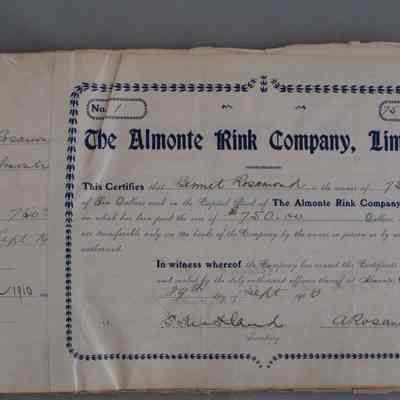 No. 1
75
The Almonte Rink Company, Lim
This Certifies that Bennet Rosamond is the owner of 75
of Ten Dollars each in the Capital Stock of The Almonte Rink Company
on which has been paid the sum of $750.00 Dollars
are transferable only on the books of the Company by the owner in person or by
authorized.
In witness whereof the Company has caused this Certificate
and sealed by its duly authorized officers thereof at Almonte,
19th day of Sept 19
Secretary
A Rosam
Rosamon
750
Sept 19
1910